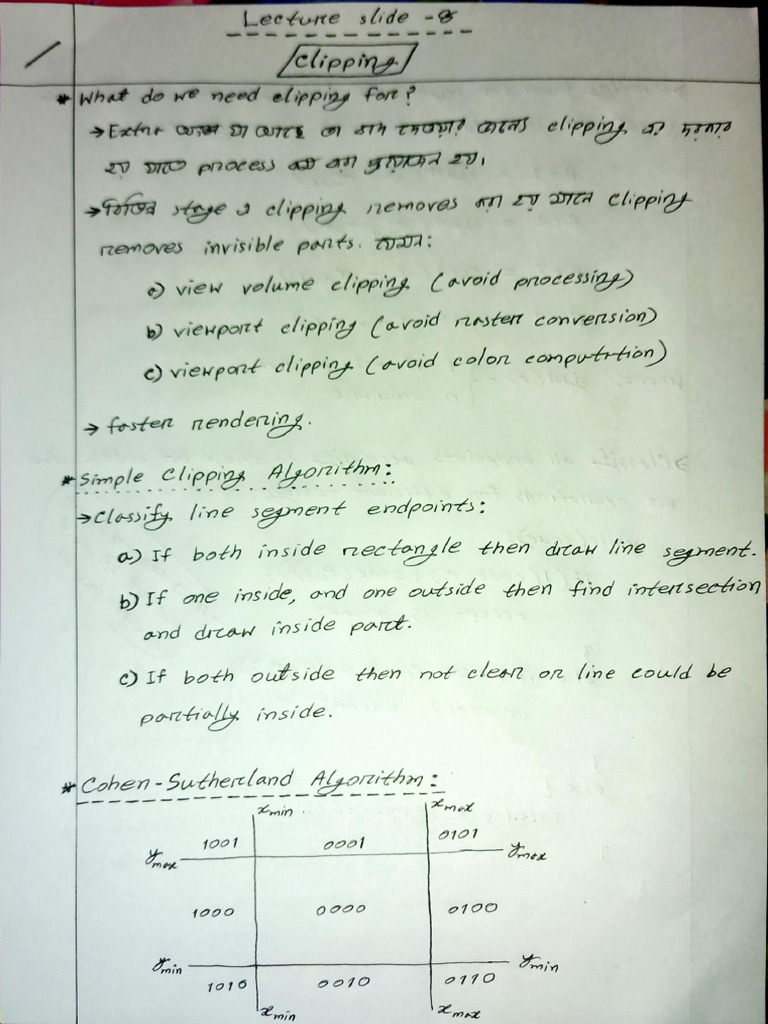 Lecture slide - 8
Clipping
* What do we need clipping for?
→ Extra অংশ যা আছে তা বাদ দেওয়ার জন্যে clipping এর দরকার
হয় যাতে process কম করা প্রয়োজন হয়।
→ বিভিন্ন stage এ clipping removes করা হয় মানে clipping
removes invisible parts. যেমন:
a) view volume clipping (avoid processing)
b) viewport clipping (avoid raster conversion)
c) viewport clipping (avoid color computation)
→ faster rendering.
* Simple Clipping Algorithm:
→ Classify line segment endpoints:
a) If both inside rectangle then draw line segment.
b) If one inside, and one outside then find intersection
and draw inside part.
c) If both outside then not clear or line could be
partially inside.
* Cohen-Sutherland Algorithm:
xmin xmax
1001 0001 0101
ymax ymax
1000 0000 0100
ymin ymin
1010 0010 0110
xmin xmax